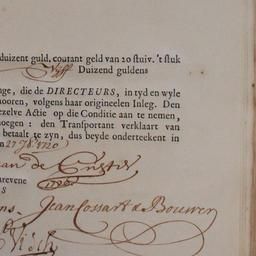 duizent guld, coutant geld van 20 stuiv. 't stuk
Vyff Duizend guldens
nge, die de DIRECTEURS, in tyd en wyle
hooren, volgens haar origineelen Inleg. Den
ezelve Actie op die Conditie aan te nemen,
noegen: den Transportant verklaart van
betaalt te zyn, dus beyde onderteekent in
n 27 7br 1720
an de
arevene
s
ns. Jean Cossart & Bouwer